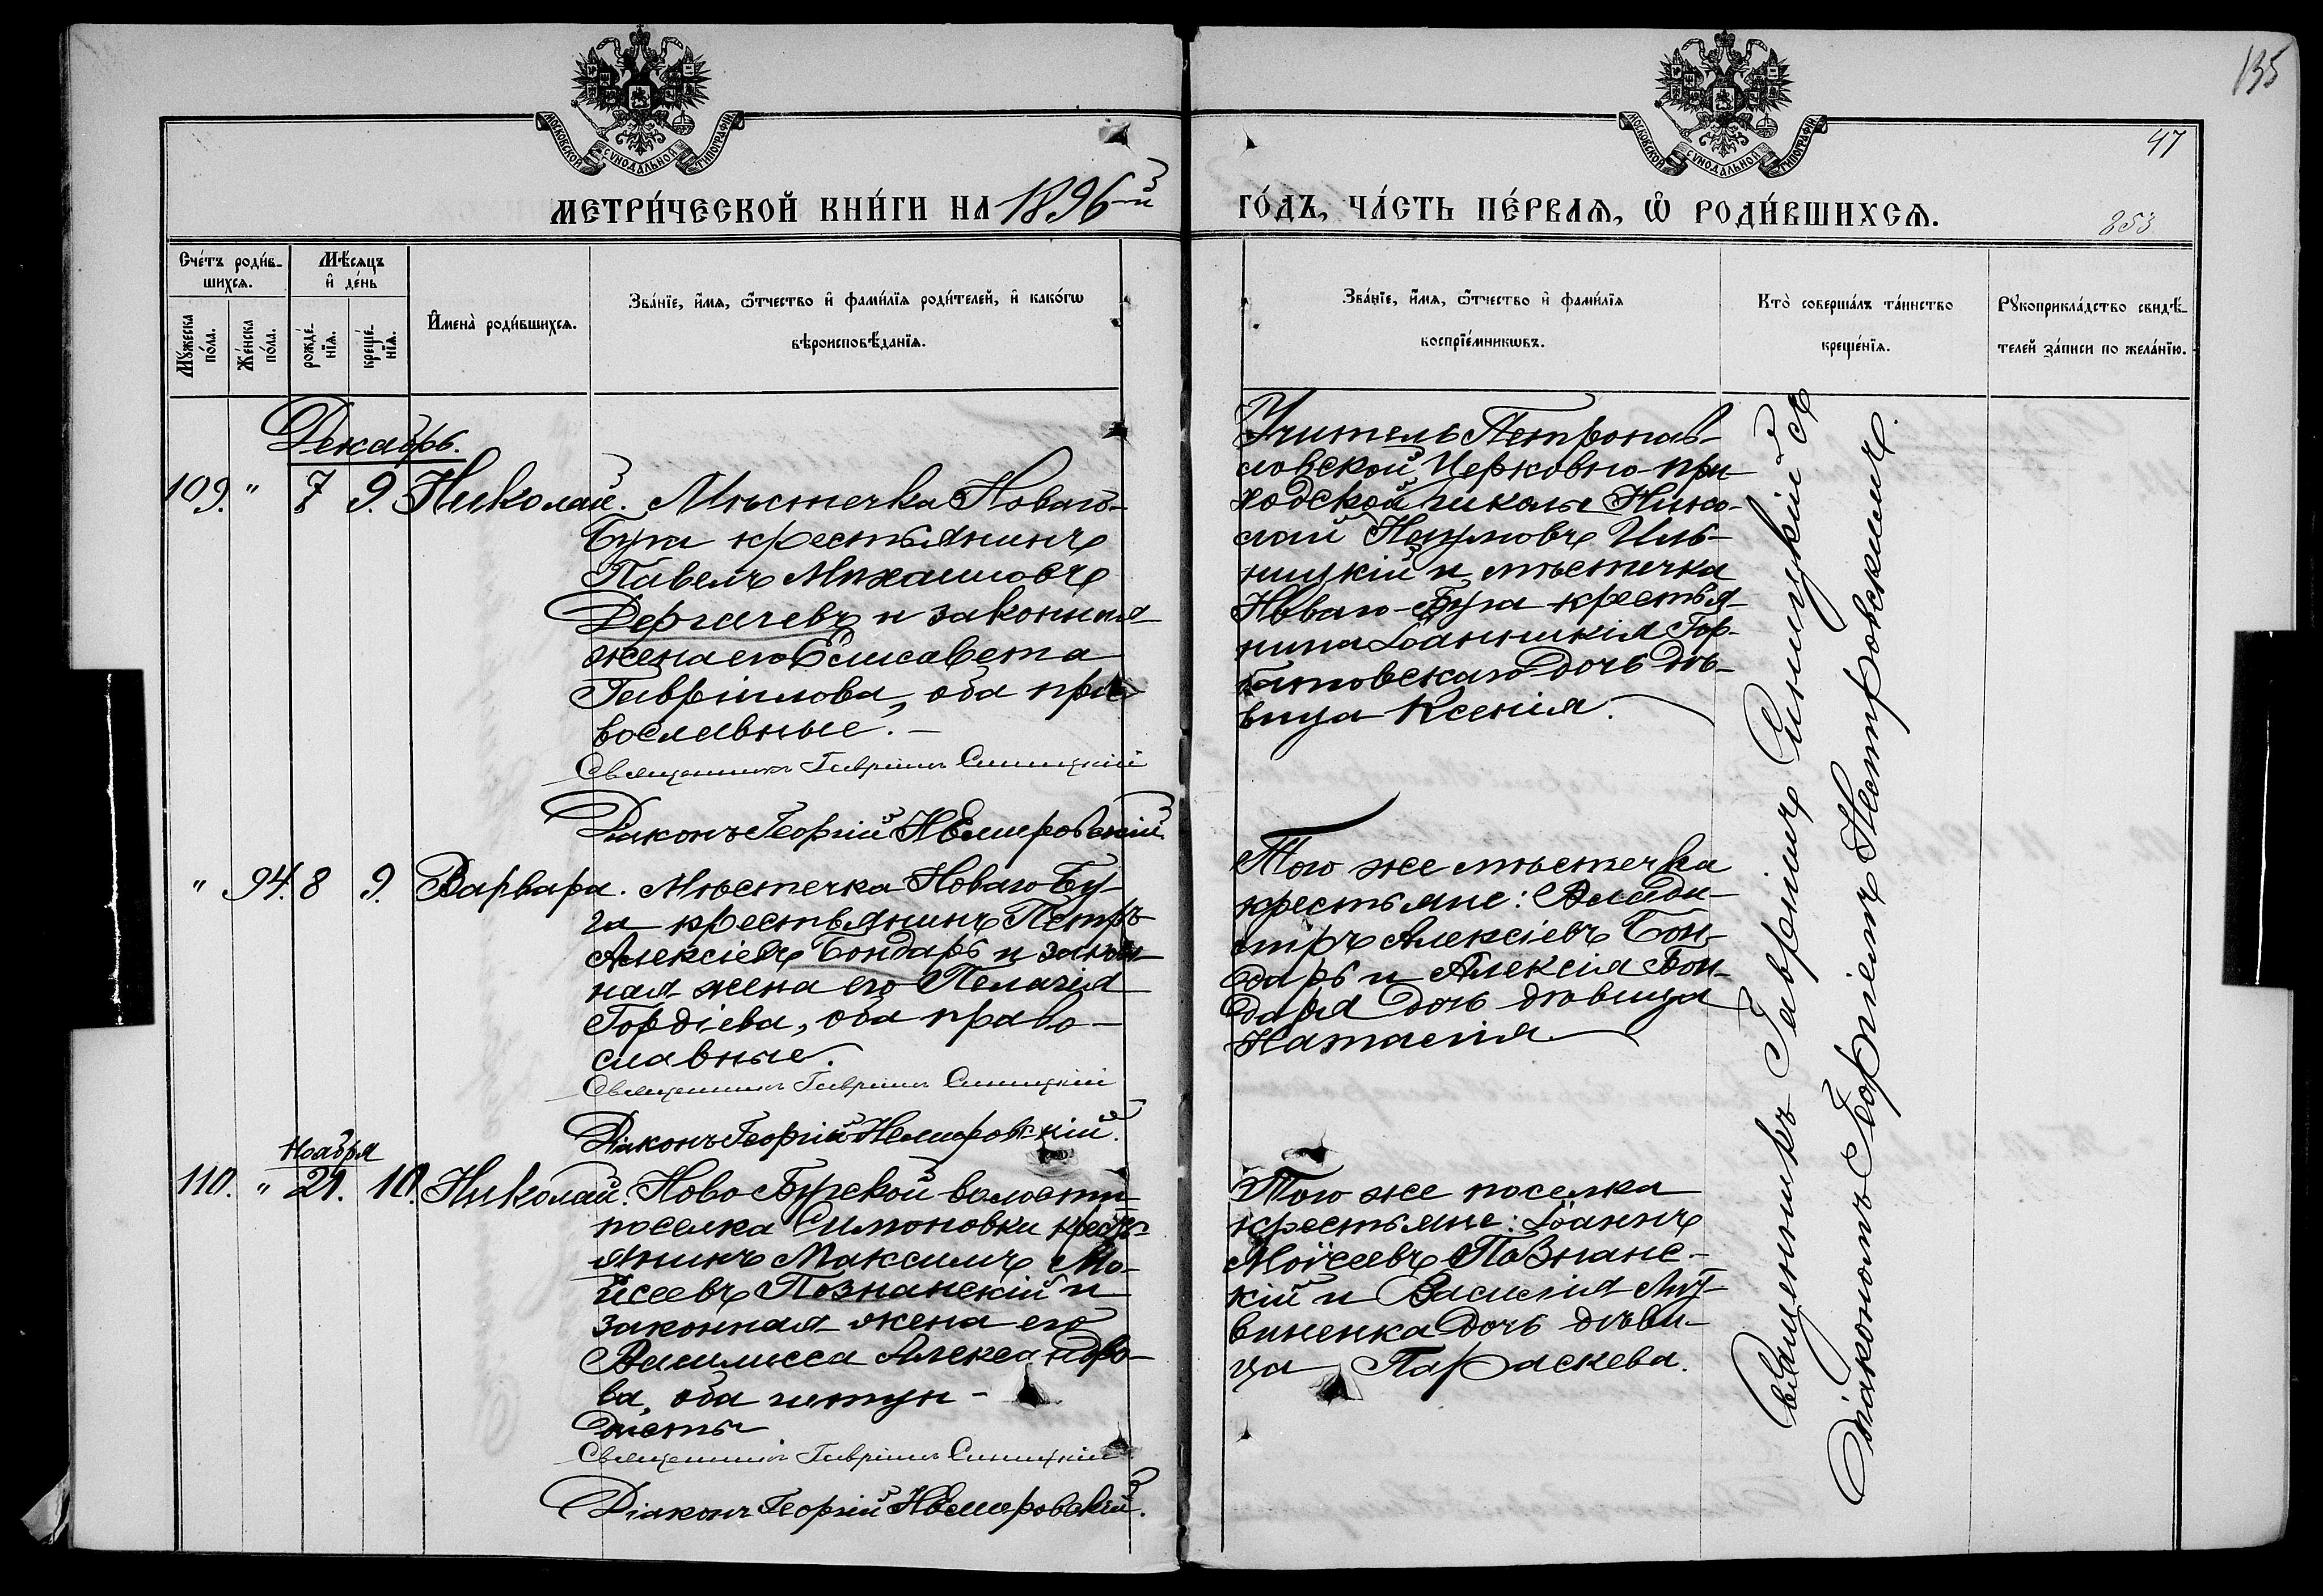 135
47
253
МОСКОВСКОЙ СѴНОДАЛЬНОЙ ТИПОГРАФІИ
МОСКОВСКОЙ СѴНОДАЛЬНОЙ ТИПОГРАФІИ
МЕТРИ́ЧЕСКОЙ КНИ́ГИ НА 1896-й
ГО́ДЪ, ЧА́СТЬ ПЕ́РВАѦ, Ѽ РОДИ́ВШИХСѦ.
Счє́тъ роди́в-
шихсѧ.
Мѣ́сѧцъ
и҆ де́нь
Мꙋ́жеска по́ла.
Же́нска по́ла.
рожде́-
нїѧ.
креще́-
нїѧ.
И҆мена̀ роди́вшихсѧ.
Зва́нїе, и҆́мѧ, ѻ҆́тчество и҆ фами́лїѧ роди́телей, и҆ како́гѡ
вѣроисповѣ́данїѧ.
Зва́нїе, и҆́мѧ, ѻ҆́тчество и҆ фами́лїѧ
воспрїе́мникѡвъ.
Кто̀ соверша́лъ та́инство
креще́нїѧ.
Рꙋкоприкла́дство свидѣ́-
телей за́писи по жела́нїю.
Декабрь.
109. " 7 9. Николай. Мѣстечка Новаго-
Буга крестьянинъ
Павелъ Михаиловъ
Дергачевъ и законная
жена его Елисавета
Гавріилова, оба пра-
вославные. –
Священникъ Гавріилъ Синицкій
Діаконъ Георгій Немировскій.
Учитель Петропав-
ловской Церковно-при-
ходской школы Нико-
лай Наумовъ Иль-
ницкій и мѣстечка
Новаго-Буга крестья-
нина Іоанникія Гор-
батовскаго дочь дѣ-
вица Ксенія.
" 94. 8 9. Варвара. Мѣстечка Новаго Бу-
га крестьянинъ Петръ
Алексіевъ Бондарь и закон-
ная жена его Пелагія
Гордіева, оба право-
славные.
Священникъ Гавріилъ Синицкій
Діаконъ Георгій Немировскій.
Того же мѣстечка
крестьяне: Влади-
міръ Алексіевъ Бон-
дарь и Алексія Бон-
даря дочь дѣвица
Наталія.
Ноября
110. " 21. 10. Николай. Ново Бугской волости
поселка Симоновки кресть-
янинъ Максимъ Мо-
исеевъ Познанскій и
законная жена его
Василисса Александро-
ва, оба штун-
дисты
Священникъ Гавріилъ Синицкій
Діаконъ Георгій Немировскій.
Того же поселка
крестьяне: Іоаннъ
Моисеевъ Познанс-
кій и Василія Лит-
виненка дочь дѣви-
ца Параскева.
Священникъ Гавріилъ Синицкій съ
Діакономъ Георгіемъ Немировскимъ.